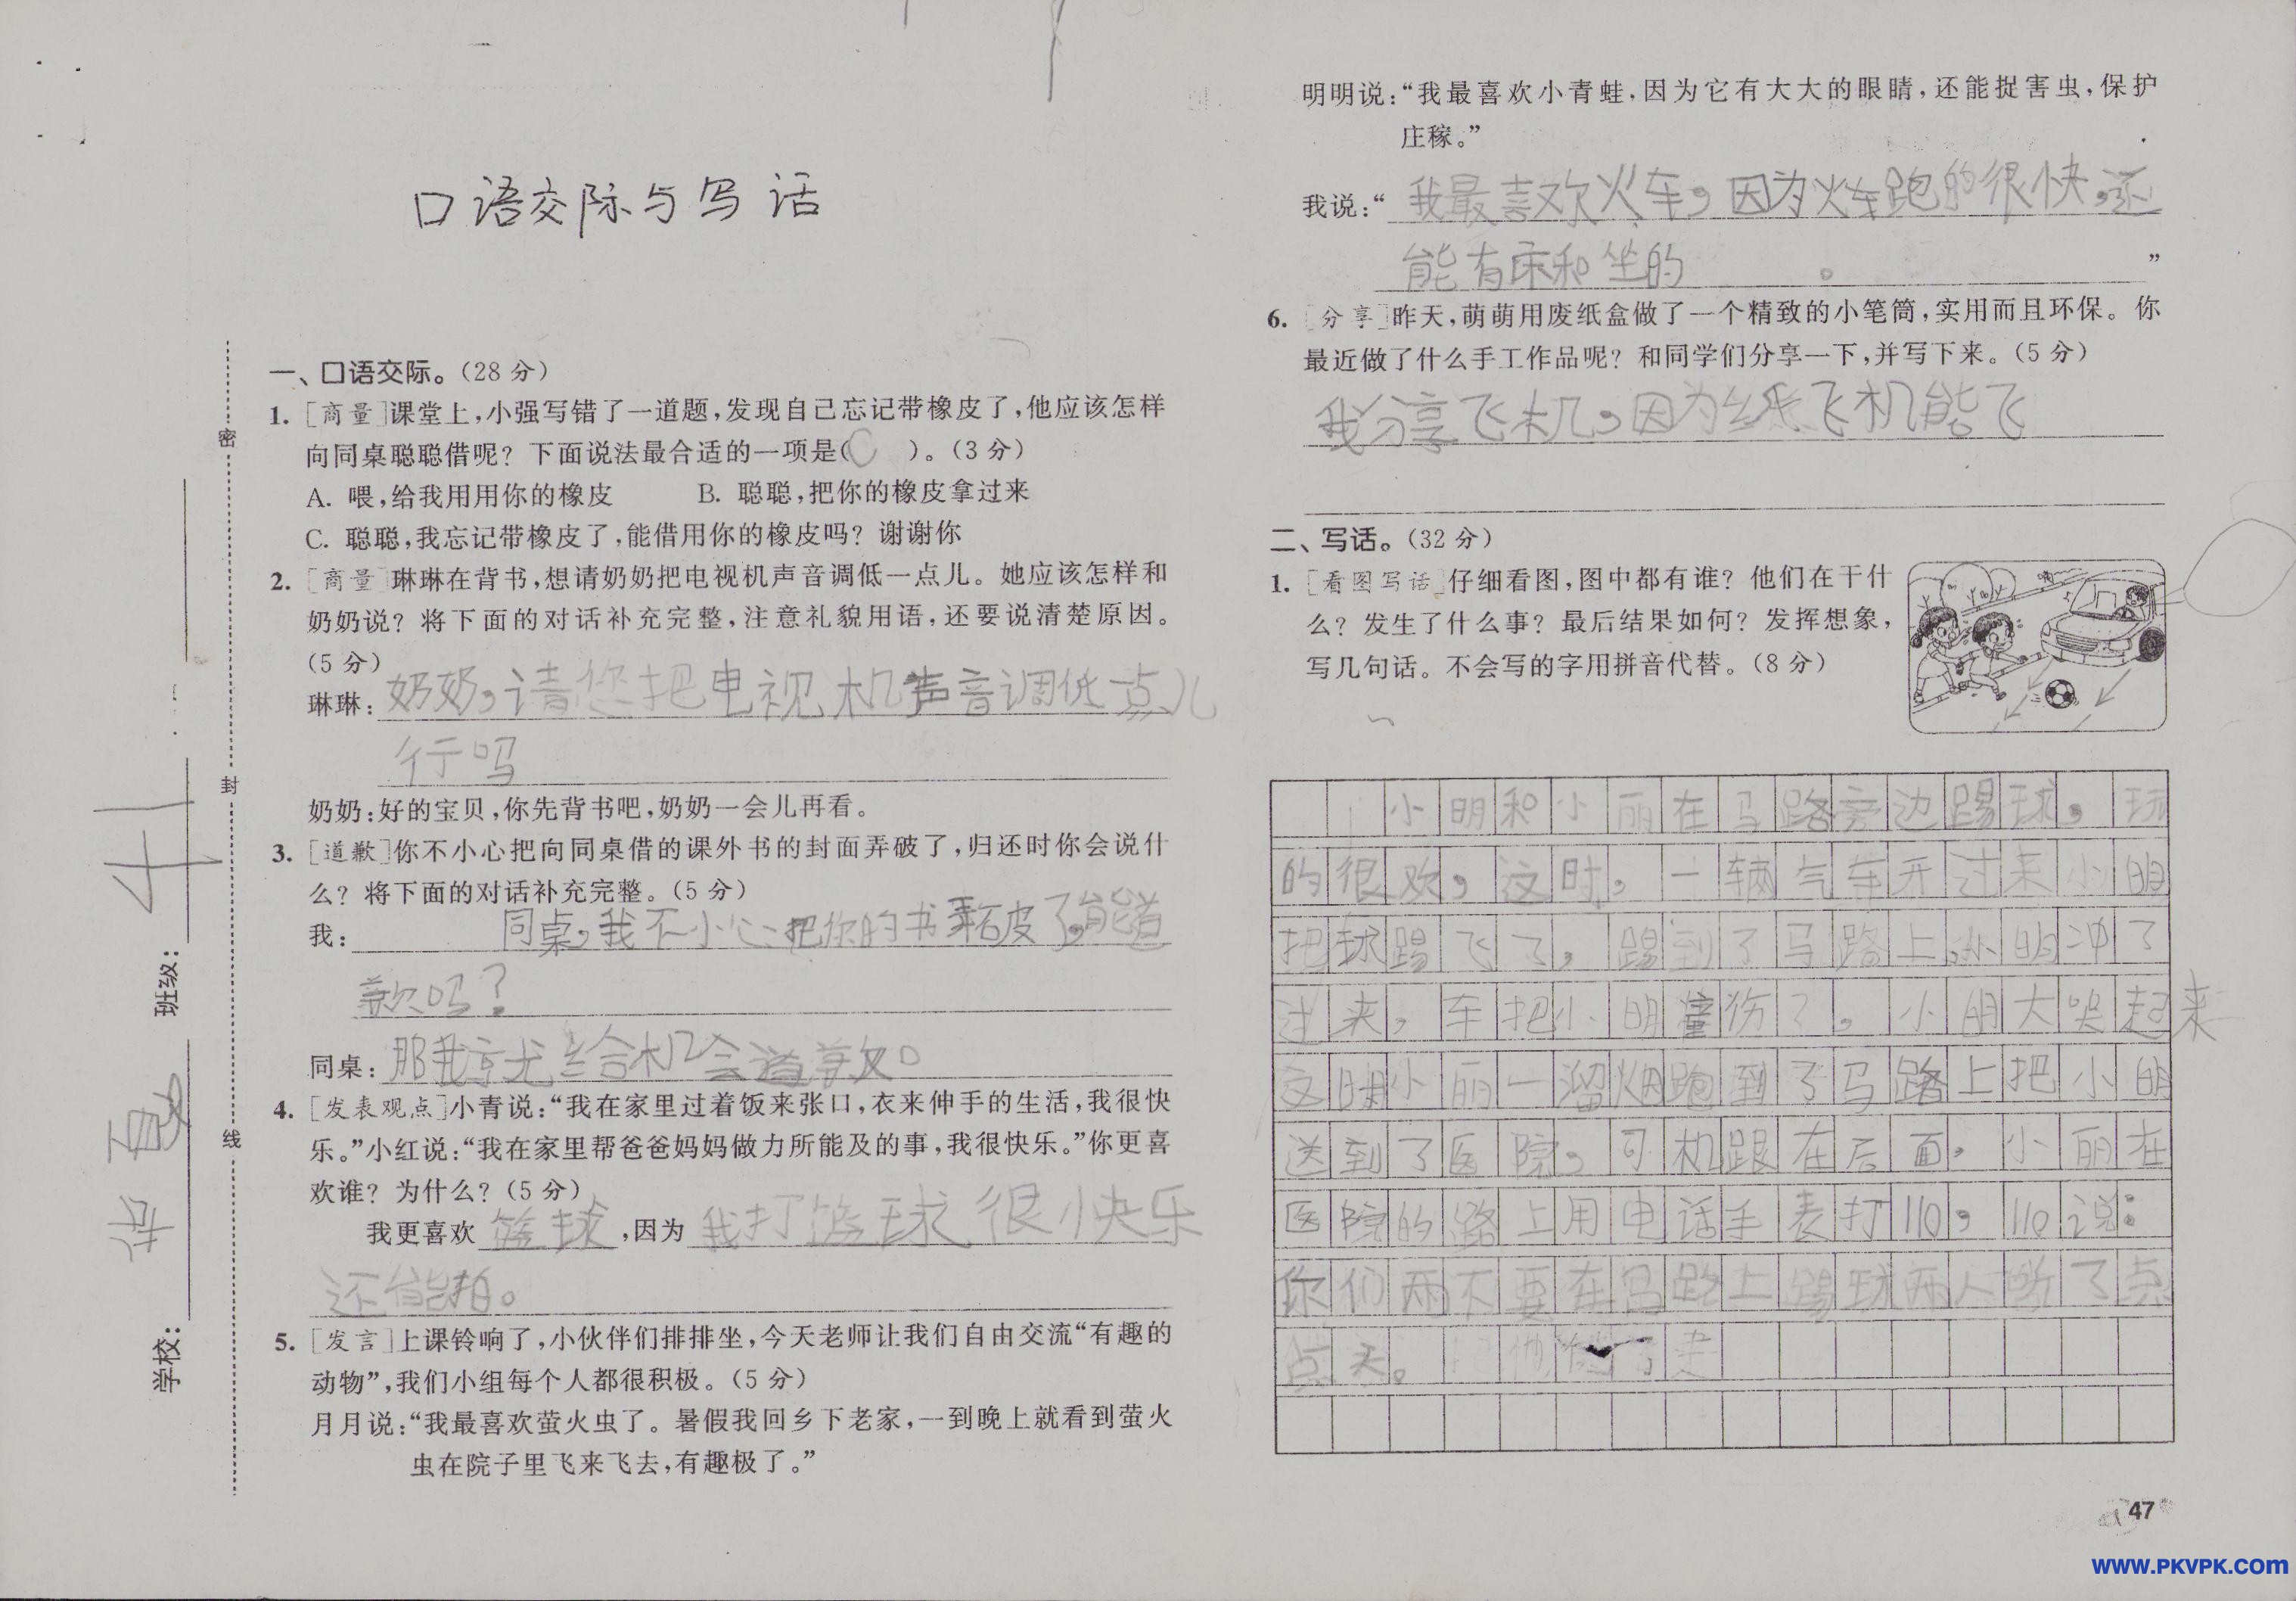 口语交际与写话
一、口语交际。(28分)
1. [商量]课堂上,小强写错了一道题,发现自己忘记带橡皮了,他应该怎样
向同桌聪聪借呢? 下面说法最合适的一项是(C )。(3分)
A. 喂,给我用用你的橡皮 B. 聪聪,把你的橡皮拿过来
C. 聪聪,我忘记带橡皮了,能借用你的橡皮吗? 谢谢你
2. [商量]琳琳在背书,想请奶奶把电视机声音调低一点儿。她应该怎样和
奶奶说? 将下面的对话补充完整,注意礼貌用语,还要说清楚原因。
(5分)
琳琳:奶奶,请您把电视机声音调低一点儿
行吗
奶奶:好的宝贝,你先背书吧,奶奶一会儿再看。
3. [道歉]你不小心把向同桌借的课外书的封面弄破了,归还时你会说什
么? 将下面的对话补充完整。(5分)
我:同桌,我不小心把你的书弄破了,能道
歉吗?
同桌:那我就给机会道歉。
4. [发表观点]小青说:“我在家里过着饭来张口,衣来伸手的生活,我很快
乐。”小红说:“我在家里帮爸爸妈妈做力所能及的事,我很快乐。”你更喜
欢谁? 为什么?(5分)
我更喜欢 篮球 ,因为 我打篮球很快乐
还能拍。
5. [发言]上课铃响了,小伙伴们排排坐,今天老师让我们自由交流“有趣的
动物”,我们小组每个人都很积极。(5分)
月月说:“我最喜欢萤火虫了。暑假我回乡下老家,一到晚上就看到萤火
虫在院子里飞来飞去,有趣极了。”
学校: 班级:
密
封
线
明明说:“我最喜欢小青蛙,因为它有大大的眼睛,还能捉害虫,保护
庄稼。”
我说:“我最喜欢火车,因为火车跑的很快,还
能有床和坐的 。”
6. [分享]昨天,萌萌用废纸盒做了一个精致的小笔筒,实用而且环保。你
最近做了什么手工作品呢? 和同学们分享一下,并写下来。(5分)
我分享飞机,因为纸飞机能飞
二、写话。(32分)
1. [看图写话]仔细看图,图中都有谁? 他们在干什
么? 发生了什么事? 最后结果如何? 发挥想象,
写几句话。不会写的字用拼音代替。(8分)
小明和小丽在马路旁边踢球,玩
的很欢,这时,一辆气车开过来小明
把球踢飞了,踢到了马路上,小明冲了
过来,车把小明撞伤了。小明大哭起来
这时小丽一溜烟跑到了马路上把小明
送到了医院,司机跟在后面,小丽在
医院的路上用电话手表打110,110说:
你们两不要在马路上踢球两人 了点
点天。 把他 了走
47
www.PKVPK.com